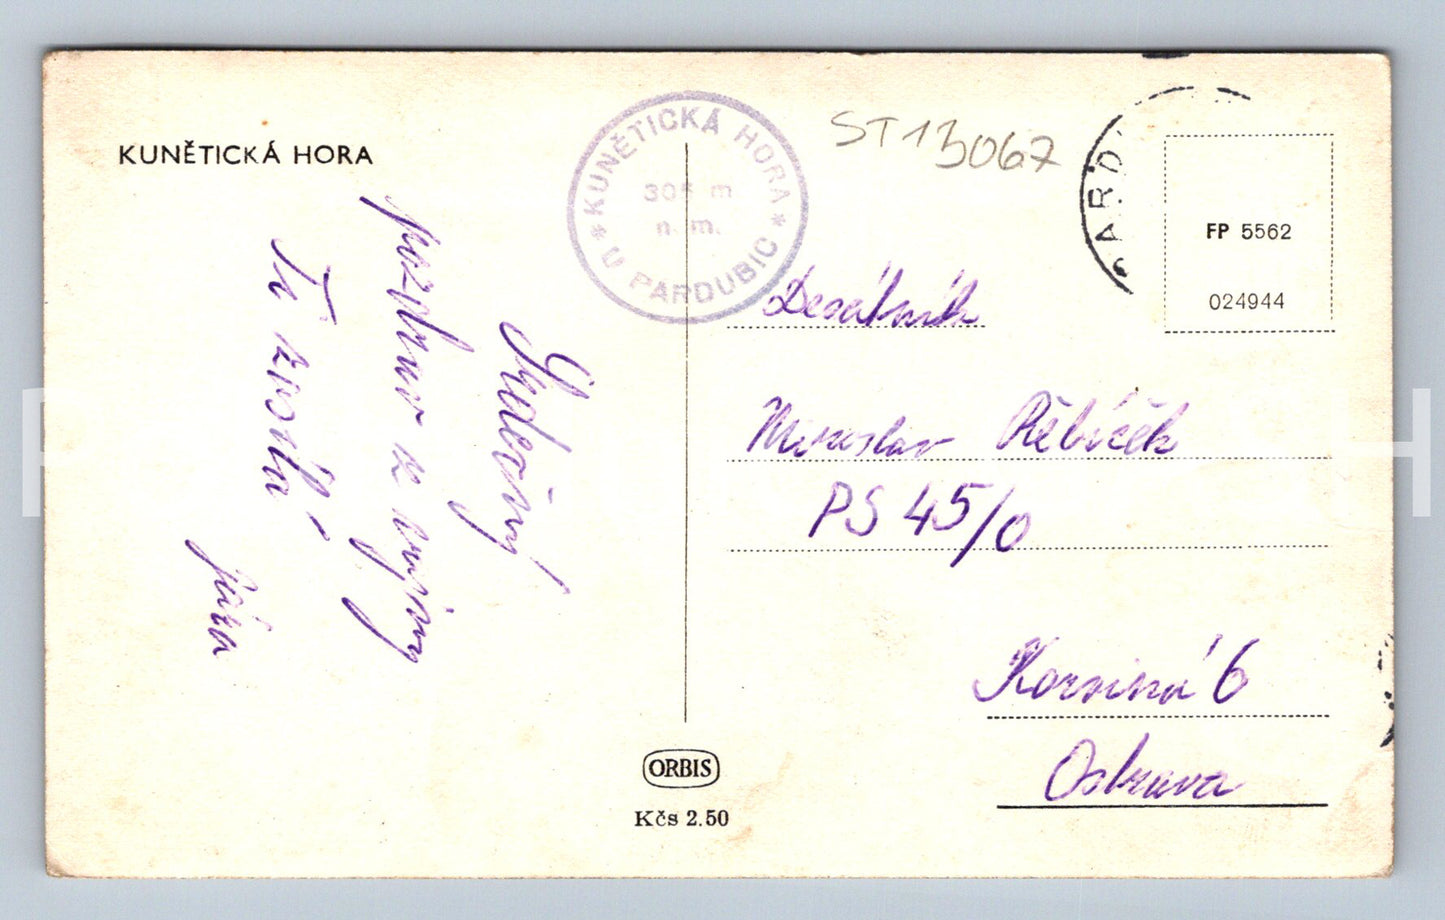 KUNĚTICKÁ HORA
Srdečný
pozdrav z vojny
Ti zasílá
Jára
* KUNĚTICKÁ HORA *
305 m
n. m.
U PARDUBIC
ST13067
PARD
FP 5562
024944
Desátník
Miroslav Řebíček
PS 45/0
Ostrava
ORBIS
Kčs 2.50